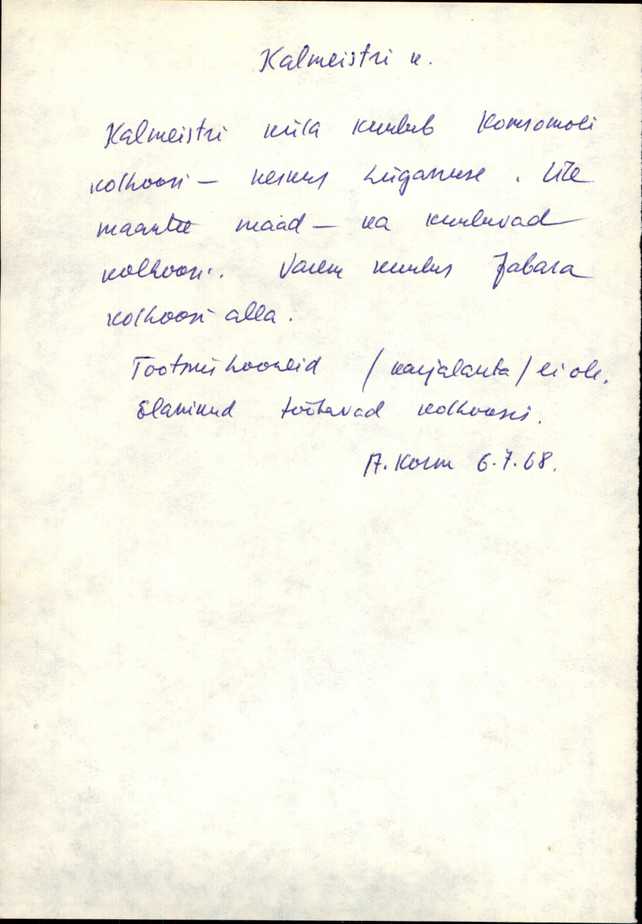 Kalmeistri k.
Kalmeistri küla kuulub Komsomoli
kolhoosi – keskus Lüganuse. Üle
maantee maad – ka kuuluvad
kolhoosi. Varem kuulus Jabara
kolhoosi alla.
Tootmishooneid /karjalauta/ ei ole.
Elanikud töötavad kolhoosis.
A. Korm 6.7.68.